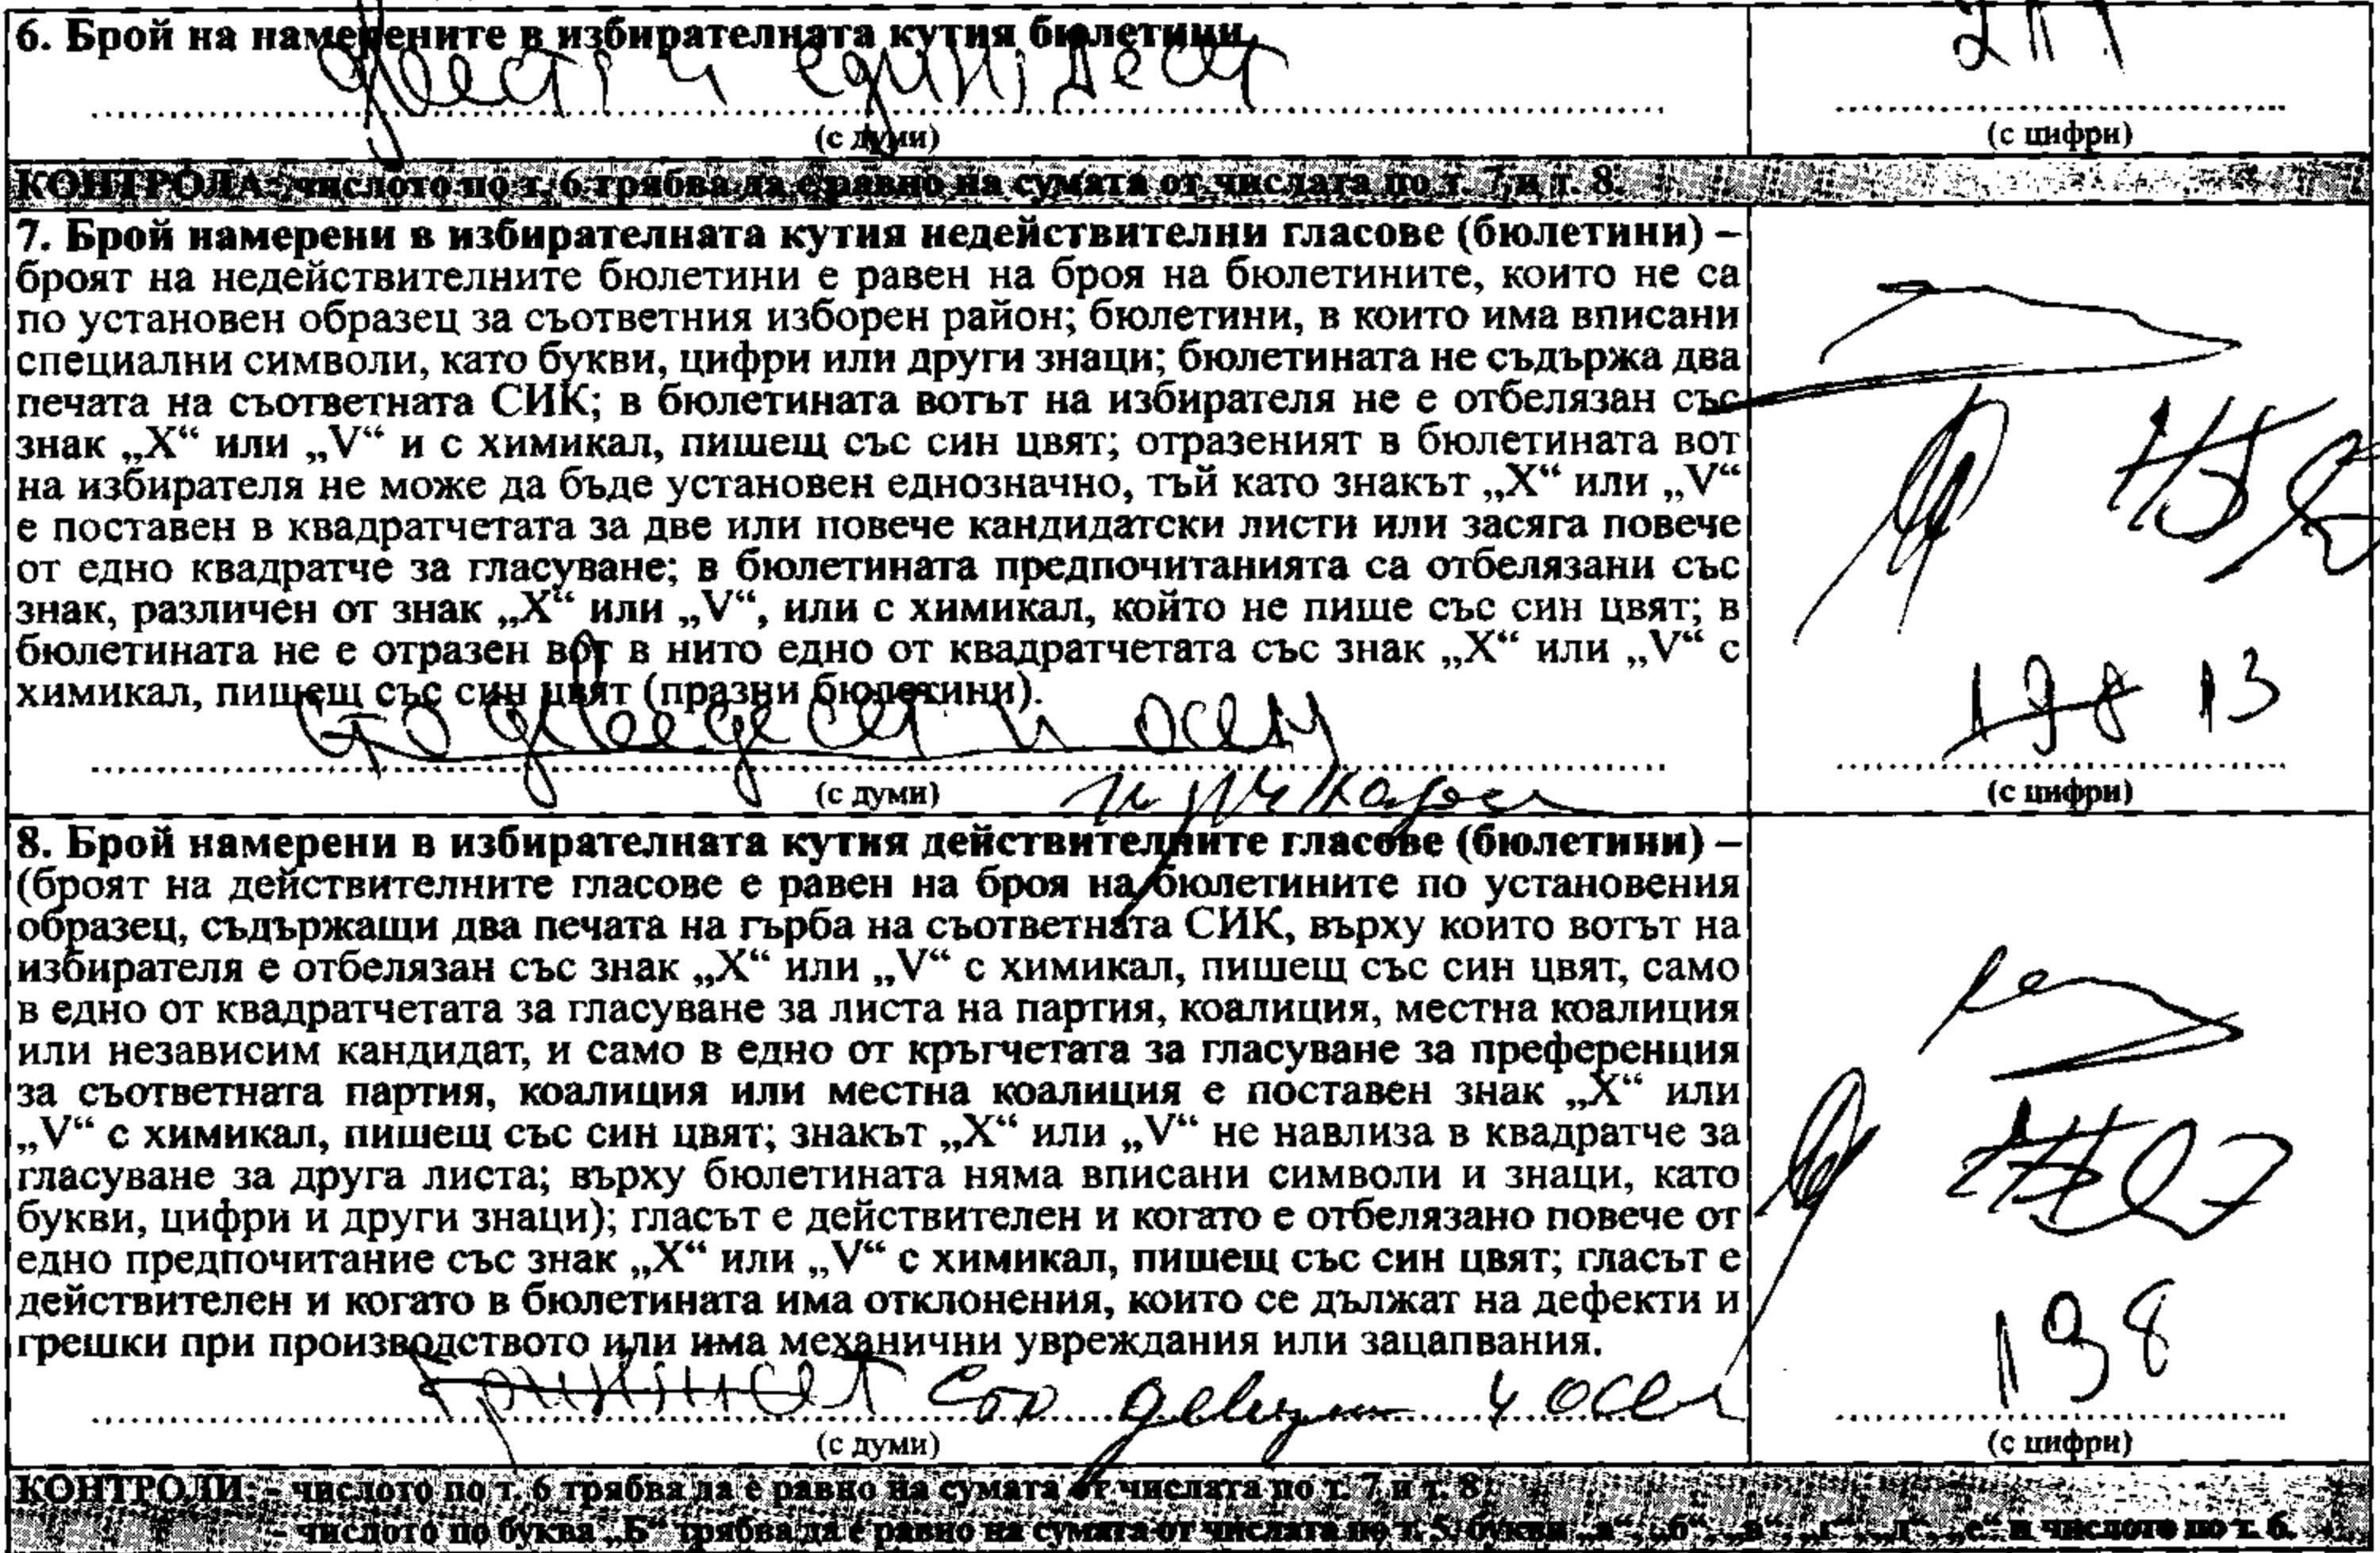 6. Брой на намерените в избирателната кутия бюлетини
двеста и единадесет
211
(с думи)
(с цифри)
КОНТРОЛА: числото по т. 6 трябва да е равно на сумата от числата по т. 7 и т. 8.
7. Брой намерени в избирателната кутия недействителни гласове (бюлетини) –
броят на недействителните бюлетини е равен на броя на бюлетините, които не са
по установен образец за съответния изборен район; бюлетини, в които има вписани
специални символи, като букви, цифри или други знаци; бюлетината не съдържа два
печата на съответната СИК; в бюлетината вотът на избирателя не е отбелязан със
знак „X“ или „V“ и с химикал, пишещ със син цвят; отразеният в бюлетината вот
на избирателя не може да бъде установен еднозначно, тъй като знакът „X“ или „V“
е поставен в квадратчетата за две или повече кандидатски листи или засяга повече
от едно квадратче за гласуване; в бюлетината предпочитанията са отбелязани със
знак, различен от знак „X“ или „V“, или с химикал, който не пише със син цвят; в
бюлетината не е отразен вот в нито едно от квадратчетата със знак „X“ или „V“ с
химикал, пишещ със син цвят (празни бюлетини).
сто деведесет и осем
198 13
(с думи)
(с цифри)
8. Брой намерени в избирателната кутия действителните гласове (бюлетини) –
(броят на действителните гласове е равен на броя на бюлетините по установения
образец, съдържащи два печата на гърба на съответната СИК, върху които вотът на
избирателя е отбелязан със знак „X“ или „V“ с химикал, пишещ със син цвят, само
в едно от квадратчетата за гласуване за листа на партия, коалиция, местна коалиция
или независим кандидат, и само в едно от кръгчетата за гласуване за преференция
за съответната партия, коалиция или местна коалиция е поставен знак „X“ или
„V“ с химикал, пишещ със син цвят; знакът „X“ или „V“ не навлиза в квадратче за
гласуване за друга листа; върху бюлетината няма вписани символи и знаци, като
букви, цифри и други знаци); гласът е действителен и когато е отбелязано повече от
едно предпочитание със знак „X“ или „V“ с химикал, пишещ със син цвят; гласът е
действителен и когато в бюлетината има отклонения, които се дължат на дефекти и
грешки при производството или има механични увреждания или зацапвания.
сто и осем
198
(с думи)
(с цифри)
КОНТРОЛИ: - числото по т. 6 трябва да е равно на сумата от числата по т. 7 и т. 8;
- числото по буква „Б“ трябва да е равно на сумата от числата по т. 5, букви „а“, „б“, „в“, „г“, „д“, „е“ и числото по т. 6.